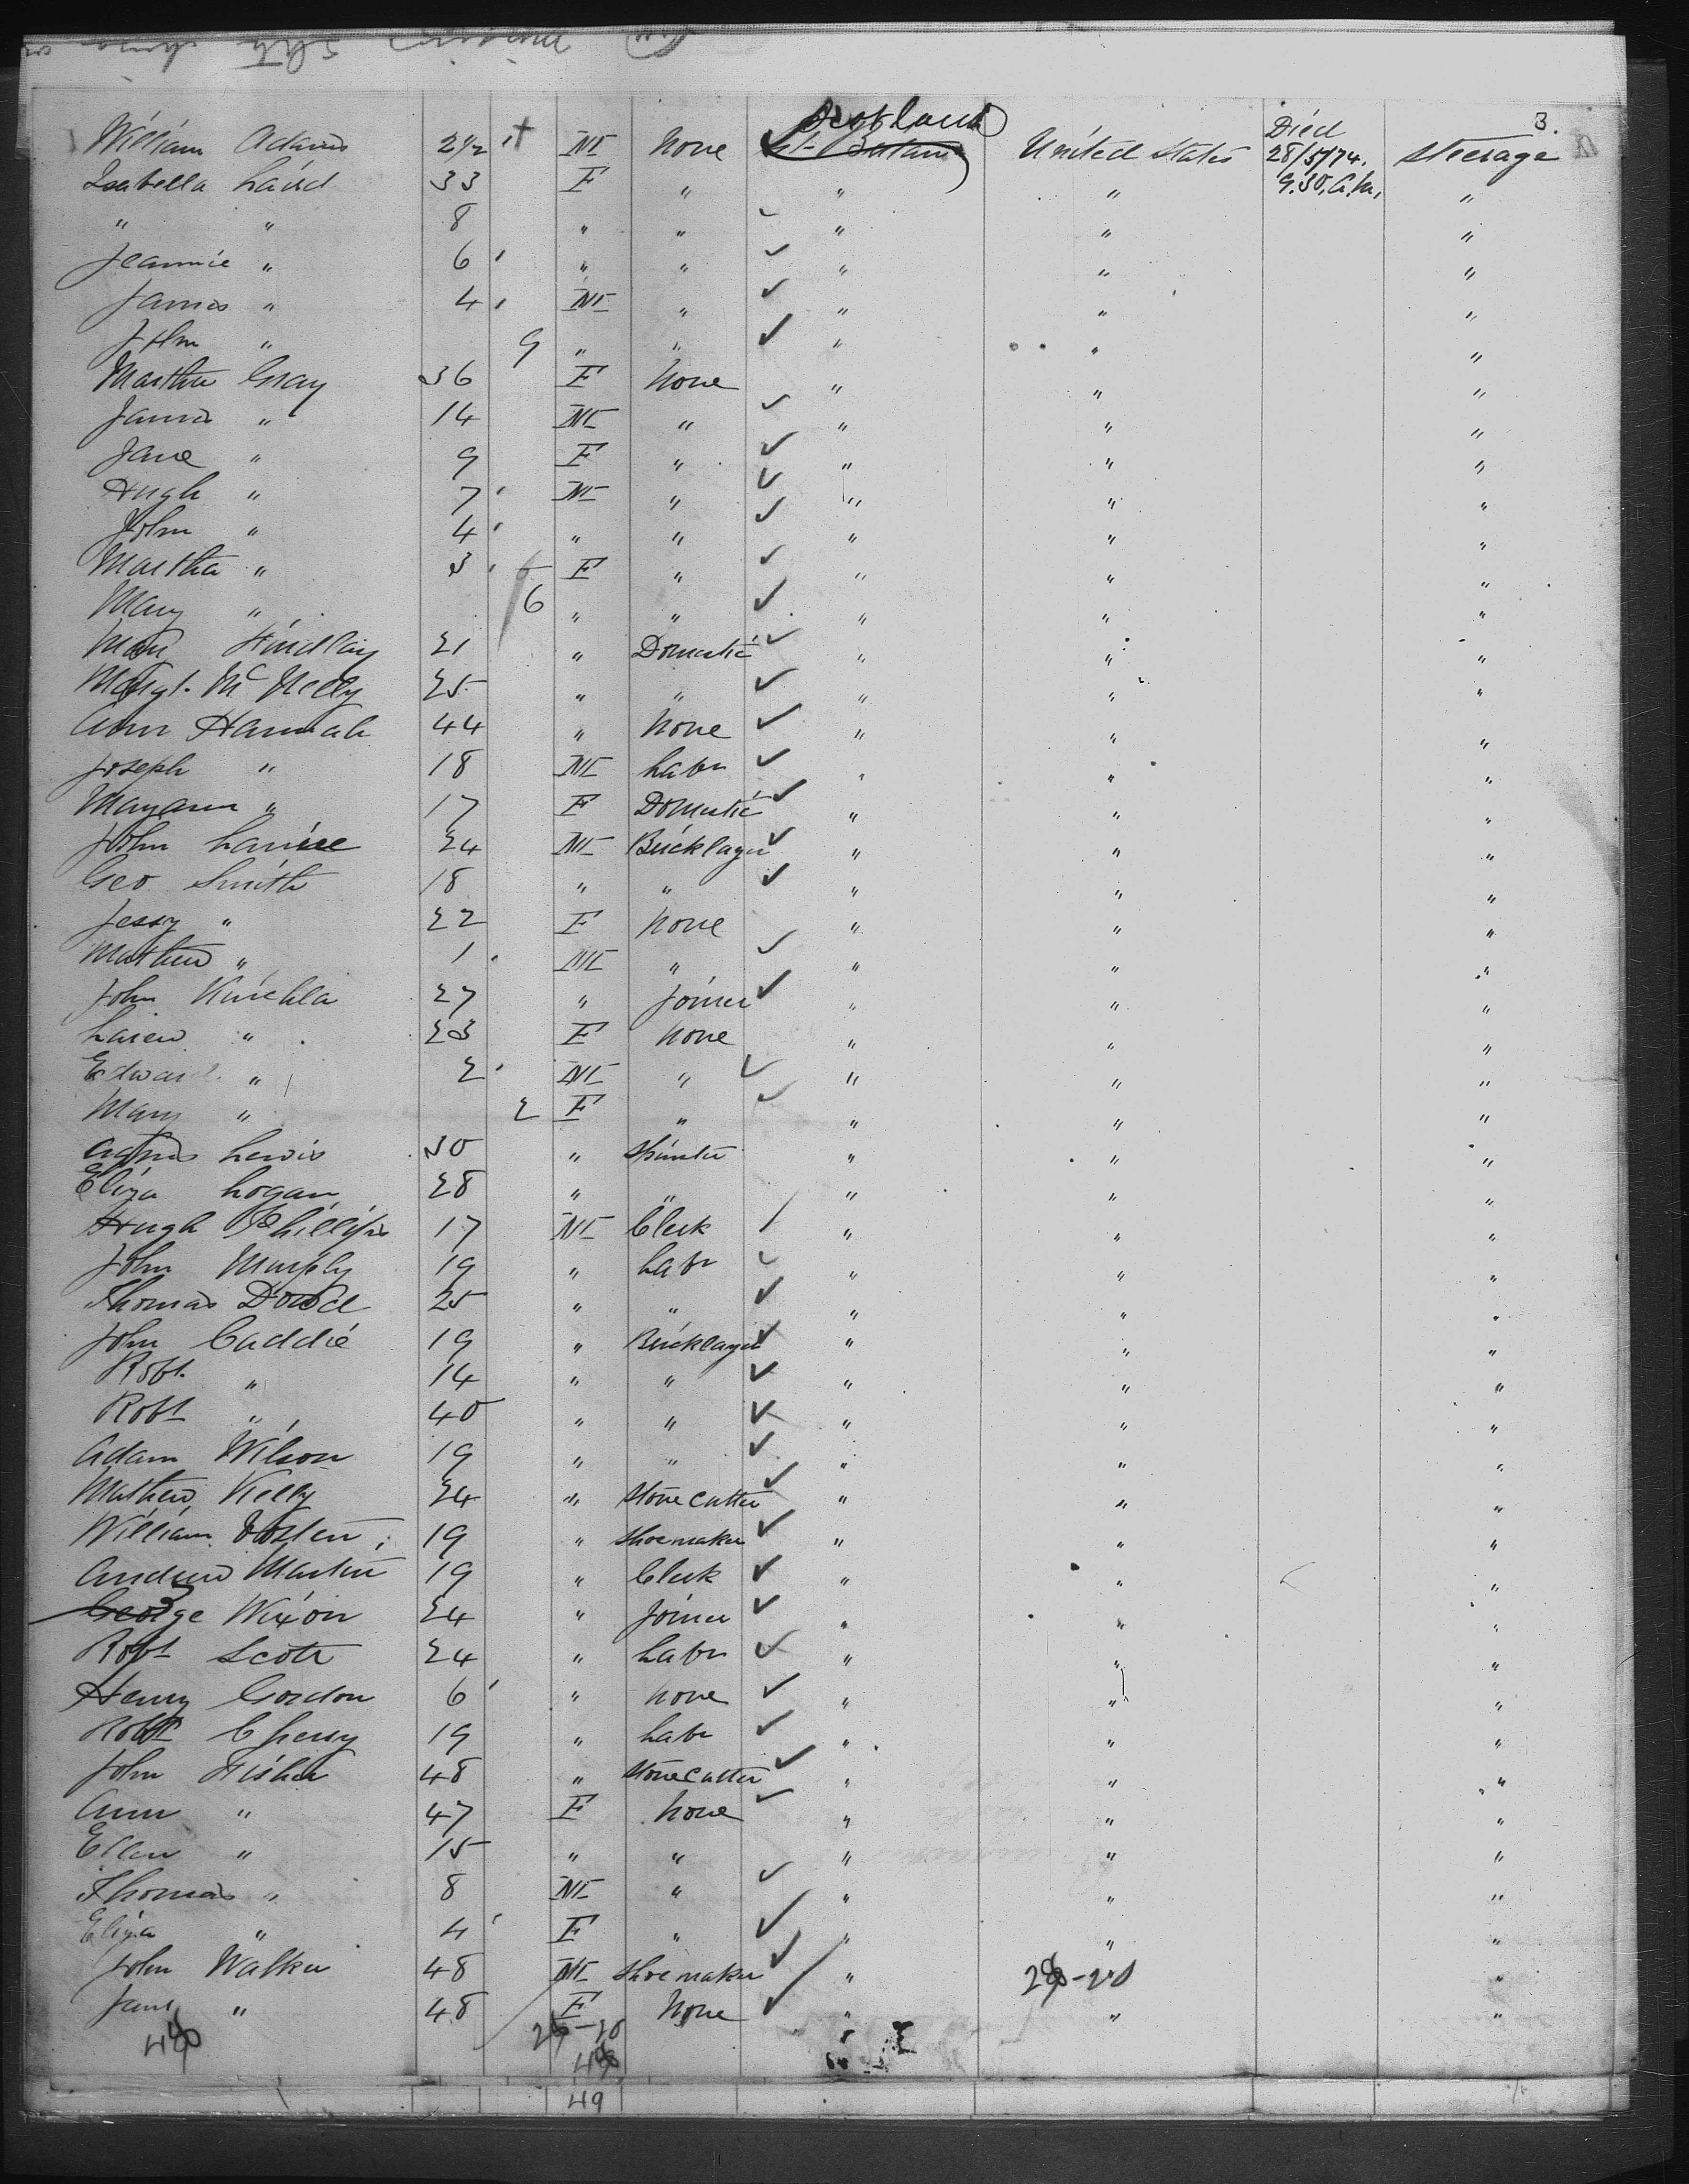 Scotland
3.
William Adams 2 1/2 M None Gt. Britain United States Died 28/5/74. 9.30. a.m. Steerage
Isabella Laird 33 F " " " "
" " 8 " " " " "
Jeannie " 6 " " " " "
James " 4 M " " " "
John " 9 " " " " "
Martha Gray 36 F None " " "
James " 14 M " " " "
Jane " 9 F " " " "
Hugh " 7 M " " " "
John " 4 " " " " "
Martha " 3 F " " " "
Mary " 6 " " " " "
Mary Findlay 21 " Domestic " " "
Margt. McNelly 25 " " " " "
Ann Hannah 44 " None " " "
Joseph " 18 M Labr " " "
Maryann " 17 F Domestic " " "
John 24 M Bricklayer " " "
Geo Smith 18 " " " " "
Jessy " 22 F None " " "
Mathew " 1 M " " " "
John 27 " Joiner " " "
" 23 F None " " "
Edward " 2 M " " " "
Mary " 2 F " " " "
Agnes Lewis 30 " Spinster " " "
Eliza Logan 28 " " " " "
Hugh Phillips 17 M Clerk " " "
John Murphy 19 " Labr " " "
Thomas Dowd 25 " " " " "
John Caddie 19 " Bricklayer " " "
Robt. " 14 " " " " "
Robt " 40 " " " " "
Adam Wilson 19 " " " " "
Mathew Kelly 24 " Stonecutter " " "
William 19 " Shoemaker " " "
Andrew Martin 19 " Clerk " " "
George Nixon 24 " Joiner " " "
Robt Scott 24 " Labr " " "
Henry Gordon 6 " None " " "
Robt 19 " Labr " " "
John Fisher 48 " Stonecutter " " "
Ann " 47 F None " " "
Ellen " 15 " " " " "
Thomas " 8 M " " " "
Eliza " 4 F " " " "
John Walker 48 M Shoemaker " "
Jane " 48 F None " " "
49